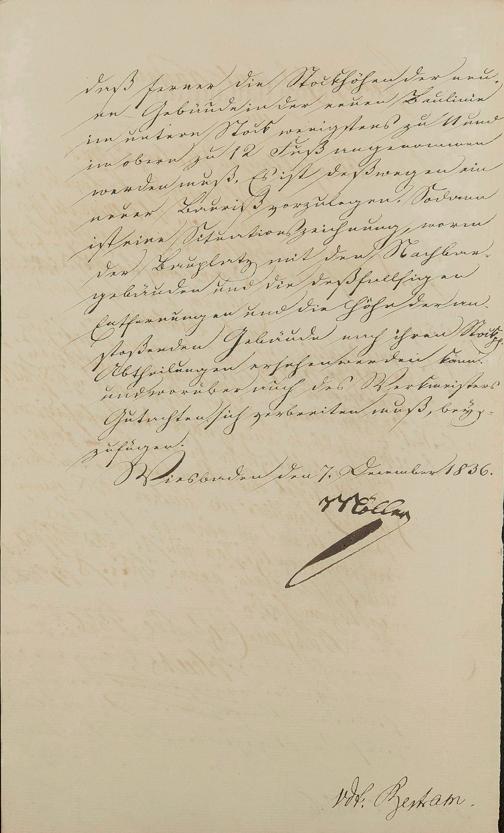 daß ferner die Stockhöhen der neu-
en Gebäude in der neuen Baulinie
im untern Stock wenigstens zu 11 und
im obern zu 12 Fuß angenommen
werden muß. Es ist deßwegen ein
neuer Bauriß vorzulegen. Sodann
ist eine Situationszeichnung, worin
der Bauplatz mit den Nachbar-
gebäuden und die deßfallsigen
Entfernungen und die Höhe der an-
stoßenden Gebäude nach ihren Stock-
Abtheilungen ersehen werden kann
und worüber auch des Werkmeisters
Gutachten sich verbreiten muß, beyz-
zufügen.
Wiesbaden den 7. December 1836.
Möller
vdt. Bertram.